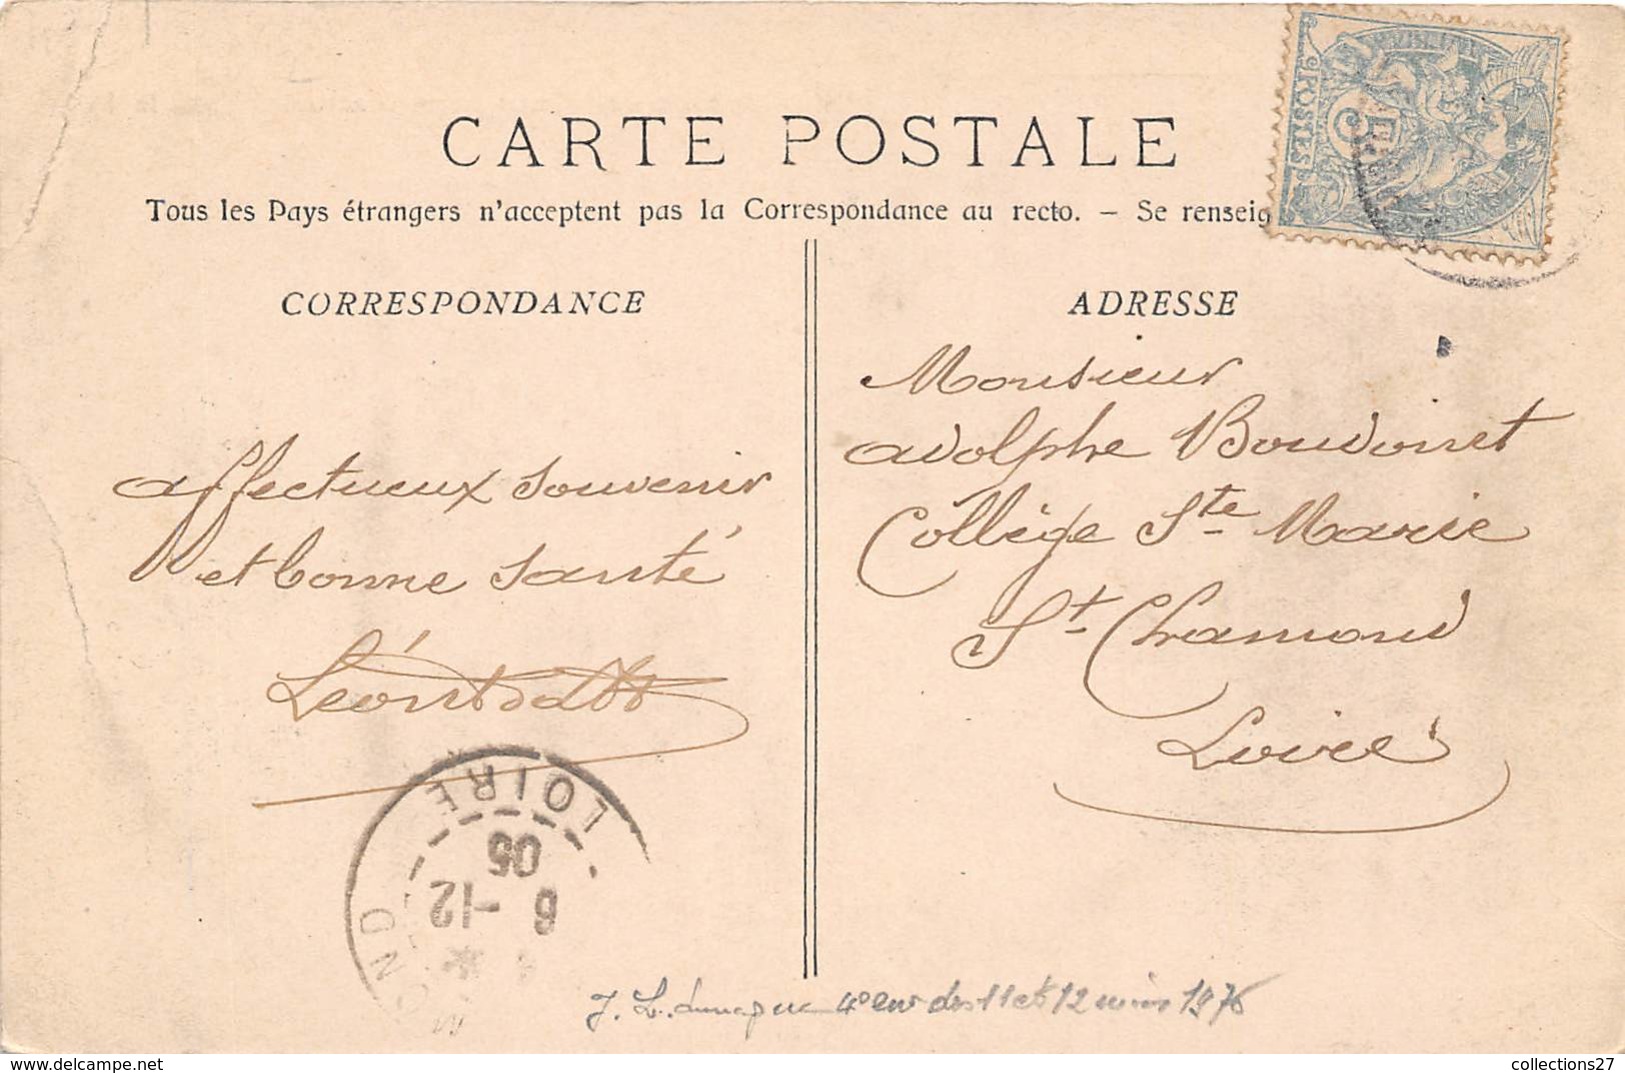 CARTE POSTALE
Tous les Pays étrangers n'acceptent pas la Correspondance au recto. – Se renseig
CORRESPONDANCE
affectueux souvenir
et bonne santé
ADRESSE
Monsieur
adolphe
Collège Ste Marie
St Chamond
Loire
POSTES
5
LOIRE
6 -12
05
OND
J. L. 4° des 11 et 12 1976
delcampe.net
collections27